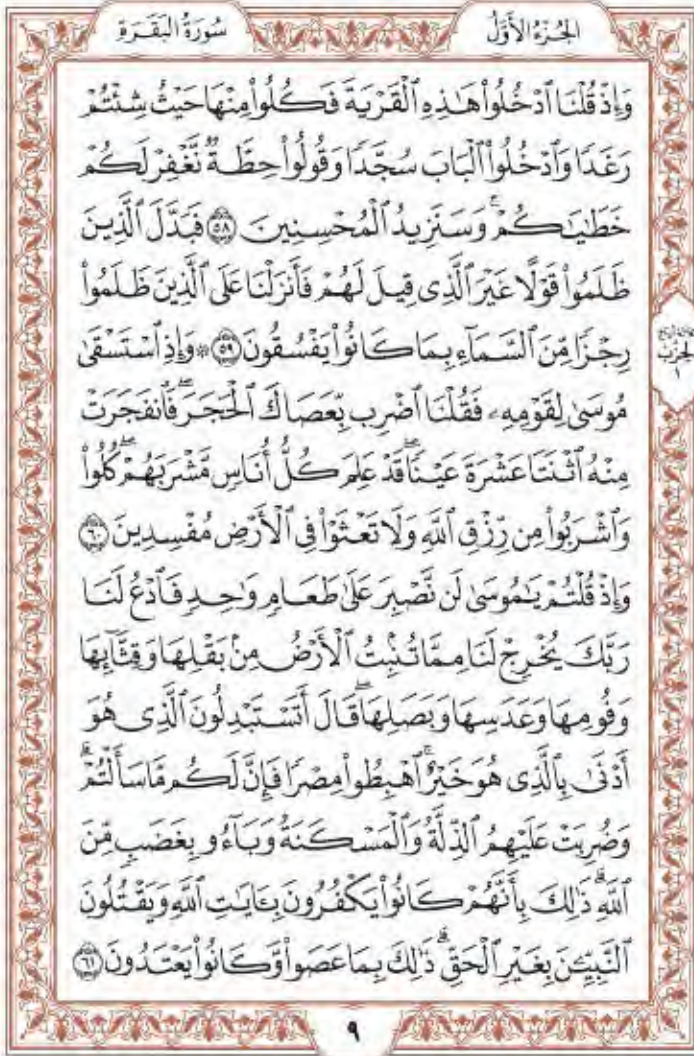 سُورَةُ الْبَقَرَةِ
الجُزْءُ الأَوَّلُ
وَإِذْ قُلْنَا ٱدْخُلُوا۟ هَـٰذِهِ ٱلْقَرْيَةَ فَكُلُوا۟ مِنْهَا حَيْثُ شِئْتُمْ
رَغَدًا وَٱدْخُلُوا۟ ٱلْبَابَ سُجَّدًا وَقُولُوا۟ حِطَّةٌ نَّغْفِرْ لَكُمْ
خَطَـٰيَـٰكُمْ ۚ وَسَنَزِيدُ ٱلْمُحْسِنِينَ ٥٨ فَبَدَّلَ ٱلَّذِينَ
ظَلَمُوا۟ قَوْلًا غَيْرَ ٱلَّذِى قِيلَ لَهُمْ فَأَنزَلْنَا عَلَى ٱلَّذِينَ ظَلَمُوا۟
رِجْزًا مِّنَ ٱلسَّمَآءِ بِمَا كَانُوا۟ يَفْسُقُونَ ٥٩ ۞ وَإِذِ ٱسْتَسْقَىٰ
مُوسَىٰ لِقَوْمِهِۦ فَقُلْنَا ٱضْرِب بِّعَصَاكَ ٱلْحَجَرَ ۖ فَٱنفَجَرَتْ
مِنْهُ ٱثْنَتَا عَشْرَةَ عَيْنًا ۖ قَدْ عَلِمَ كُلُّ أُنَاسٍ مَّشْرَبَهُمْ ۖ كُلُوا۟
وَٱشْرَبُوا۟ مِن رِّزْقِ ٱللَّهِ وَلَا تَعْثَوْا۟ فِى ٱلْأَرْضِ مُفْسِدِينَ ٦٠
وَإِذْ قُلْتُمْ يَـٰمُوسَىٰ لَن نَّصْبِرَ عَلَىٰ طَعَامٍ وَٰحِدٍ فَٱدْعُ لَنَا
رَبَّكَ يُخْرِجْ لَنَا مِمَّا تُنۢبِتُ ٱلْأَرْضُ مِنۢ بَقْلِهَا وَقِثَّآئِهَا
وَفُومِهَا وَعَدَسِهَا وَبَصَلِهَا ۖ قَالَ أَتَسْتَبْدِلُونَ ٱلَّذِى هُوَ
أَدْنَىٰ بِٱلَّذِى هُوَ خَيْرٌ ۚ ٱهْبِطُوا۟ مِصْرًا فَإِنَّ لَكُم مَّا سَأَلْتُمْ ۗ
وَضُرِبَتْ عَلَيْهِمُ ٱلذِّلَّةُ وَٱلْمَسْكَنَةُ وَبَآءُو بِغَضَبٍ مِّنَ
ٱللَّهِ ۗ ذَٰلِكَ بِأَنَّهُمْ كَانُوا۟ يَكْفُرُونَ بِـَٔايَـٰتِ ٱللَّهِ وَيَقْتُلُونَ
ٱلنَّبِيِّـۧنَ بِغَيْرِ ٱلْحَقِّ ۗ ذَٰلِكَ بِمَا عَصَوا۟ وَّكَانُوا۟ يَعْتَدُونَ ٦١
الحزب
١
٩